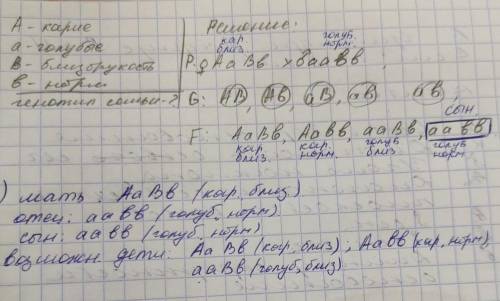 А - карие
а - голубые
В - близорукость
в - норм
генотип семьи - ?
Решение:
кар. близ. голуб. норм.
P: ♀ АаВв × ♂ аавв
G: АВ, Ав, аВ, ав ав
сын
F: АаВв, Аавв, ааВв, аавв
кар. близ. кар. норм. голуб близ. голуб норм
) мать: АаВв (кар. близ)
отец: аавв (голуб, норм)
сын: аавв (голуб, норм)
возможн. дети: АаВв (кар, близ), Аавв (кар, норм)
ааВв (голуб, близ)